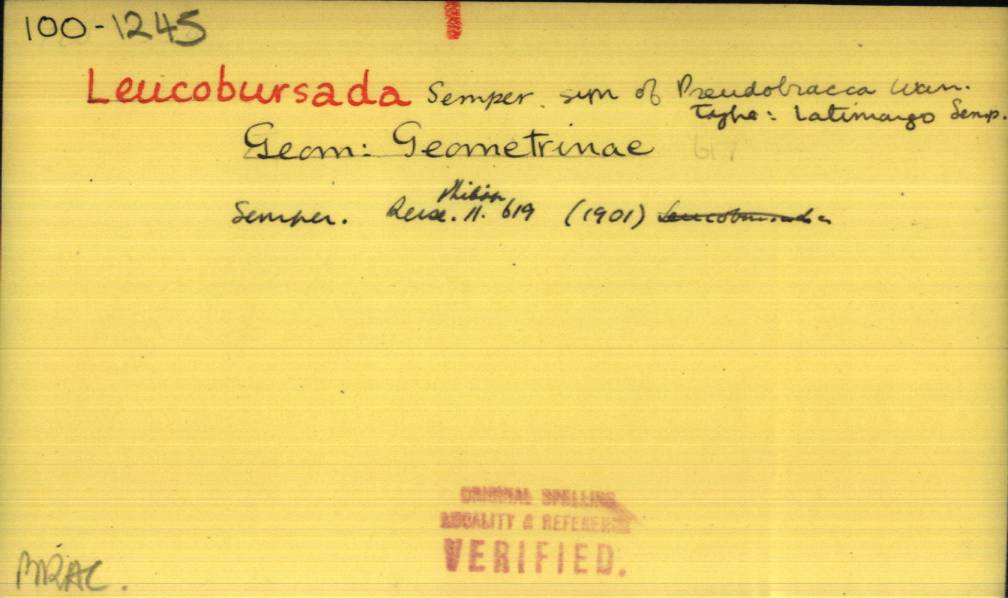 100-1245
Leucobursada Semper. syn of Pseudobracca Warr.
Type: latimargo Semp.
Geom: Geometrinae 617
Semper. Reise. Philipp. II. 619 (1901) Leucobursada
ORIGINAL SPELLING
LOCALITY & REFERENCE
VERIFIED.
BRAC.